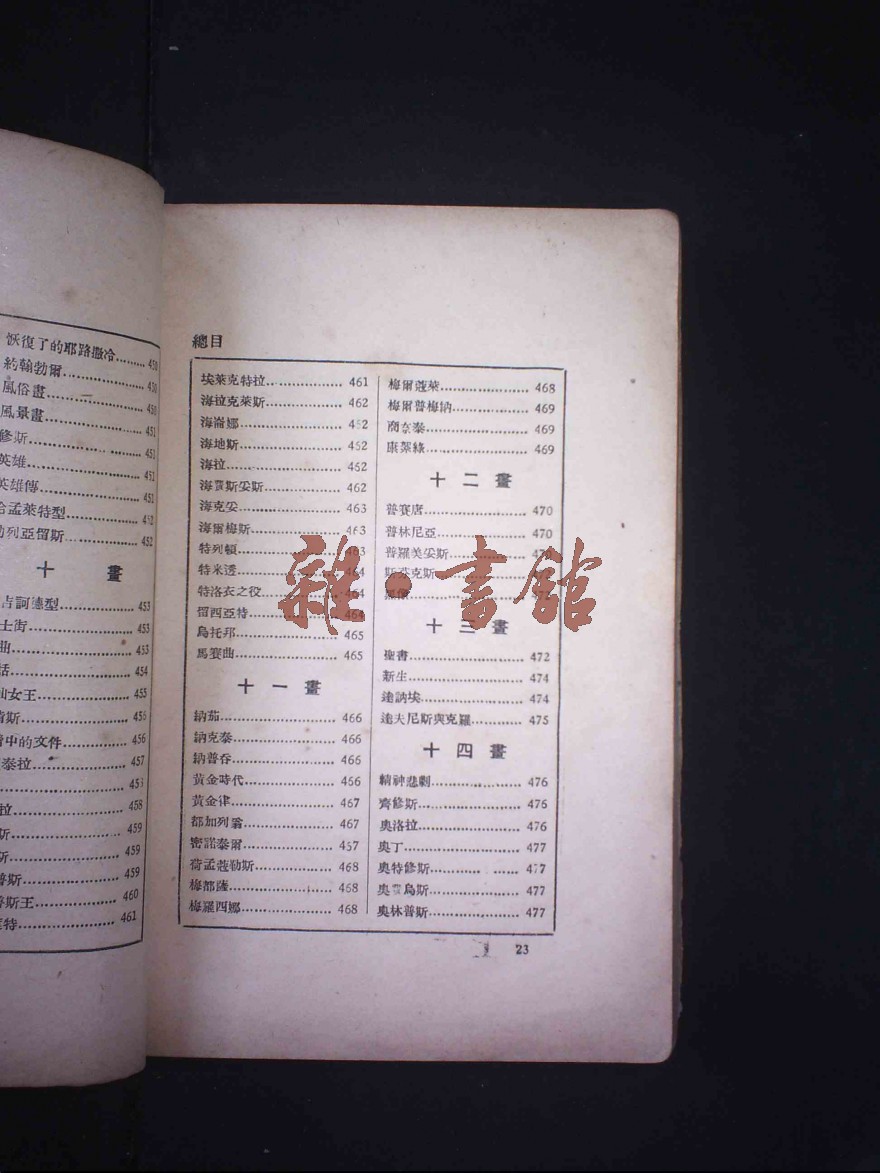 恢復了的耶路撒冷………450
約翰勃爾………450
風俗畫………450
風景畫………451
修斯………451
英雄………451
英雄傳………451
孟萊特型………452
列亞留斯………452
十 畫
吉訶德型………453
士街………453
曲………453
話………454
女王………455
斯………455
中的文件………456
泰拉………457
拉………458
斯………459
斯………459
普斯………459
斯王………460
特………461
總目
埃萊克特拉………461
海拉克萊斯………462
海崙娜………452
海地斯………452
海拉………452
海賈斯妥斯………462
海克妥………463
海爾梅斯………463
特列頓………463
特米透………464
特洛衣之役………464
留西亞特………464
烏托邦………465
馬賽曲………465
十一畫
納茄………466
納克泰………466
納普吞………466
黃金時代………456
黃金律………467
都加列翁………467
密諾泰爾………457
荷孟蔻勒斯………468
梅都薩………468
梅羅西娜………468
梅爾蔻萊………468
梅爾普梅納………469
商奈泰………469
康萊絲………469
十二畫
普賽唐………470
普林尼亞………470
普羅美妥斯………470
斯芬克斯
十三畫
聖書………472
新生………474
達訥埃………474
達夫尼斯與克羅………475
十四畫
精神悲劇………476
齊修斯………476
奧洛拉………476
奧丁………477
奧特修斯………477
奧賈烏斯………477
奧林普斯………477
23
雜·書館